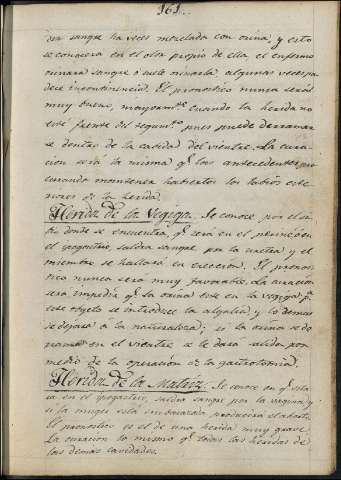 161.
dra sangre ha veces mesclada con orina, y esto
se conocera en el olor propio de ella el enfermo
orinara sangre o suele minarla, algunas veces pa
dece incontinencia. El pronostico nunca será
muy bueno, mayoram.te cuando la herida no
esté frente del segum.to pues puede derramar
se dentro de la cabidad del vientre. La cura-
cion será la misma q.e las antecedentes pro
curando mantener habiertos los labios este-
riores de la herida.
Heridas de la Vegiga. Se conoce por el si-
tio donde se encuentra, q.e será en el perinéo en
el ipogastrio, saldra sangre por la uretra y el
miembro se hallará en ereccion. El pronos-
tico nunca será muy favorable. La curacion
será impedir q.e la orina esté en la vegiga p.a
este objeto se introduce la algalia, y lo demas
se dejará a la naturaleza; si la orina se de
rrama en el vientre se le dará salida por
medio de la operacion de la gastrotomia.
Heridas de la Matriz. Se conoce en q.e esta-
rá en el ipogastrio, saldra sangre por la vegina, y
si la muger está embarazada producirá el aborto.
El pronostico es el de una herida muy grave.
La curacion lo mismo q.e todas las heridas de
las demas cavidades.